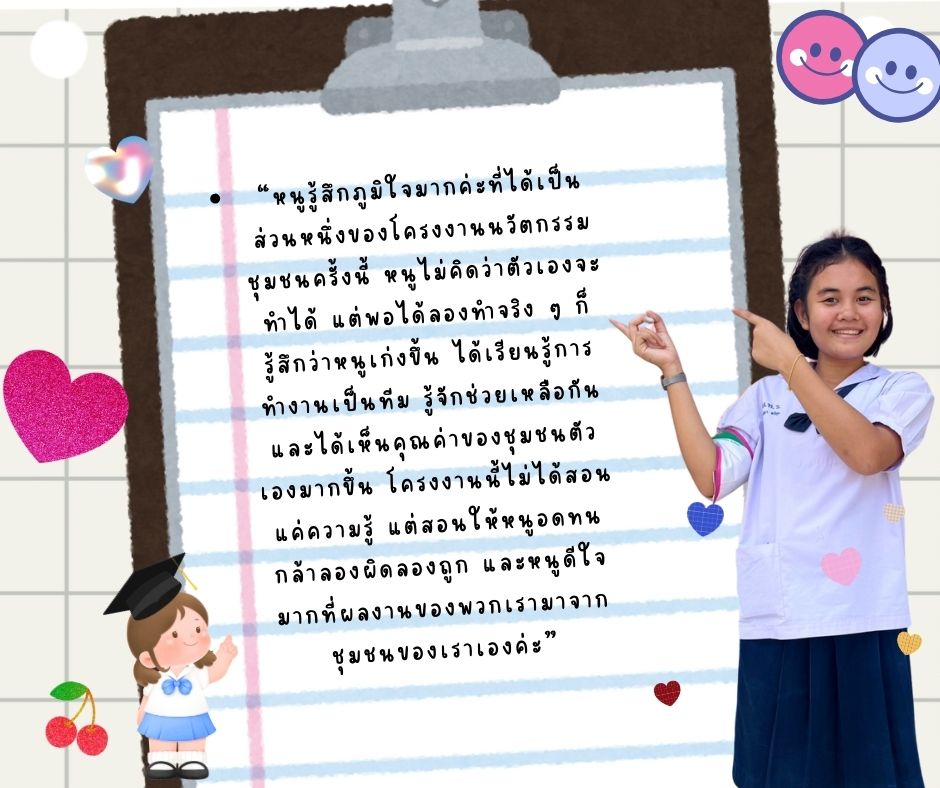 “หนูรู้สึกภูมิใจมากค่ะที่ได้เป็น
ส่วนหนึ่งของโครงงานนวัตกรรม
ชุมชนครั้งนี้ หนูไม่คิดว่าตัวเองจะ
ทำได้ แต่พอได้ลองทำจริง ๆ ก็
รู้สึกว่าหนูเก่งขึ้น ได้เรียนรู้การ
ทำงานเป็นทีม รู้จักช่วยเหลือกัน
และได้เห็นคุณค่าของชุมชนตัว
เองมากขึ้น โครงงานนี้ไม่ได้สอน
แค่ความรู้ แต่สอนให้หนูอดทน
กล้าลองผิดลองถูก และหนูดีใจ
มากที่ผลงานของพวกเรามาจาก
ชุมชนของเราเองค่ะ”